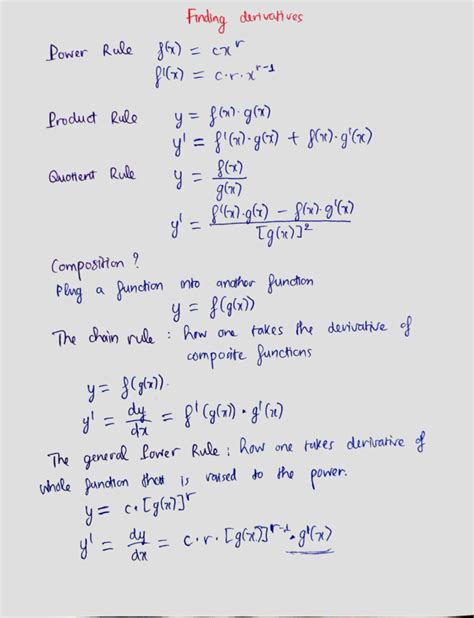 Finding derivatives
Power Rule f(x) = cx^r
f'(x) = c·r·x^{r-1}
Product Rule y = f(x)·g(x)
y' = f'(x)·g(x) + f(x)·g'(x)
Quotient Rule y = f(x)/g(x)
y' = (f'(x)·g(x) − f(x)·g'(x))/[g(x)]^2
Composition ?
Plug a function into another function
y = f(g(x))
The chain rule : how one takes the derivative of
composite functions
y = f(g(x)).
y' = dy/dx = f'(g(x))·g'(x)
The general Power Rule : how one takes derivative of
whole function that is raised to the power.
y = c·[g(x)]^r
y' = dy/dx = c·r·[g(x)]^{r-1}·g'(x)